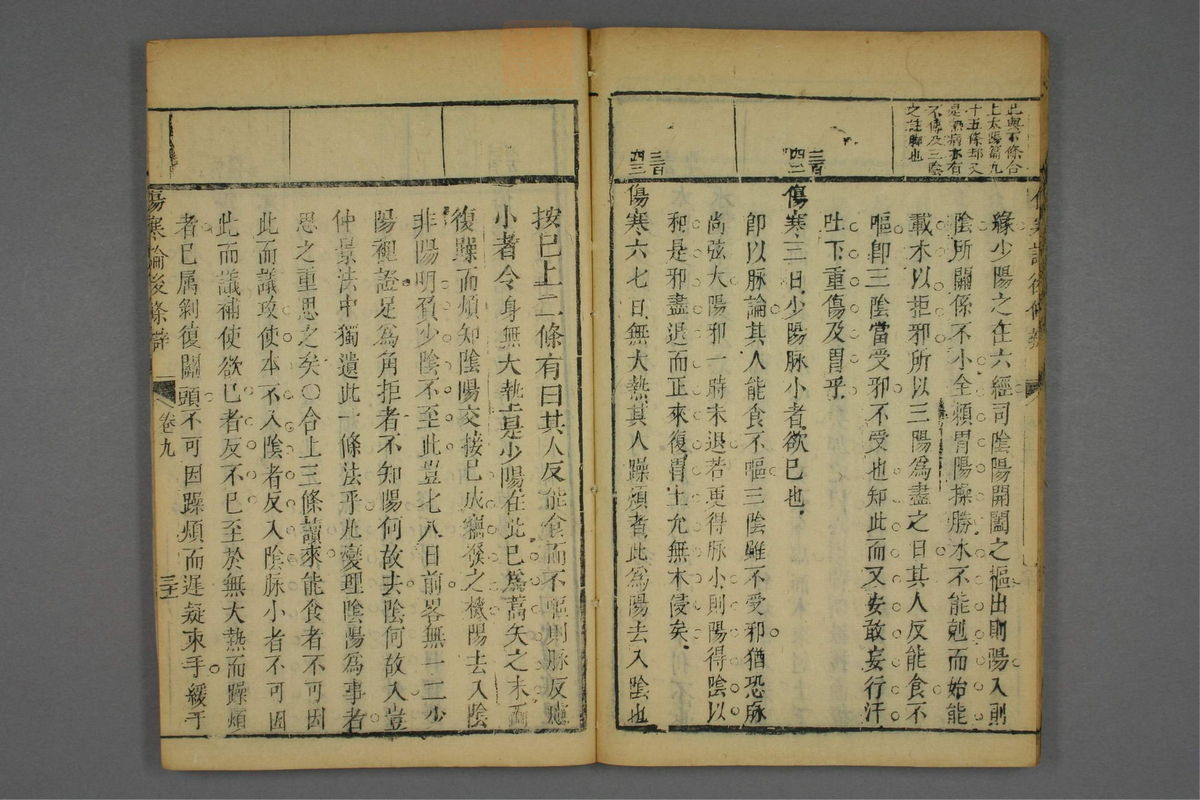 此與下條合
上太陽篇九
十五條却又
是熱病亦有
不傳及三陰
之註脚也
緣少陽之在六經司陰陽開闔之樞出則陽入則
陰所關係不小全賴胃陽操勝木不能剋而始能
載木以拒邪所以三陽為盡之日其人反能食不
嘔卽三陰當受邪不受也知此而又安敢妄行汗
吐下重傷及胃乎
三百
四二
傷寒三日少陽脉小者欲已也
卽以脉論其人能食不嘔三陰雖不受邪猶恐脉
尚弦大陽邪一時未退若更得脉小則陽得陰以
和是邪盡退而正來復胃土允無木侵矣
三百
四三
傷寒六七日無大熱其人躁煩者此為陽去入陰也
按已上二條有曰其人反能食而不嘔則脉反
小者今身無大熱是少陽在此已為蒿矢之末
復躁而煩知陰陽交接已成之機陽去入陰
非陽明負少陰不至此豈七八日前畧無一二少
陽裡證足為角拒者不知陽何故去陰何故入豈
仲景法中獨遺此一條法乎凡燮理陰陽為事者
思之重思之矣〇合上三條讀來能食者不可因
此而議攻使本不入陰者反入陰脉小者不可因
此而議補使欲已者反不已至於無大熱而躁煩
者已属剝復關頭不可因躁煩而遲疑束手緩于
傷寒論後條辯
卷九